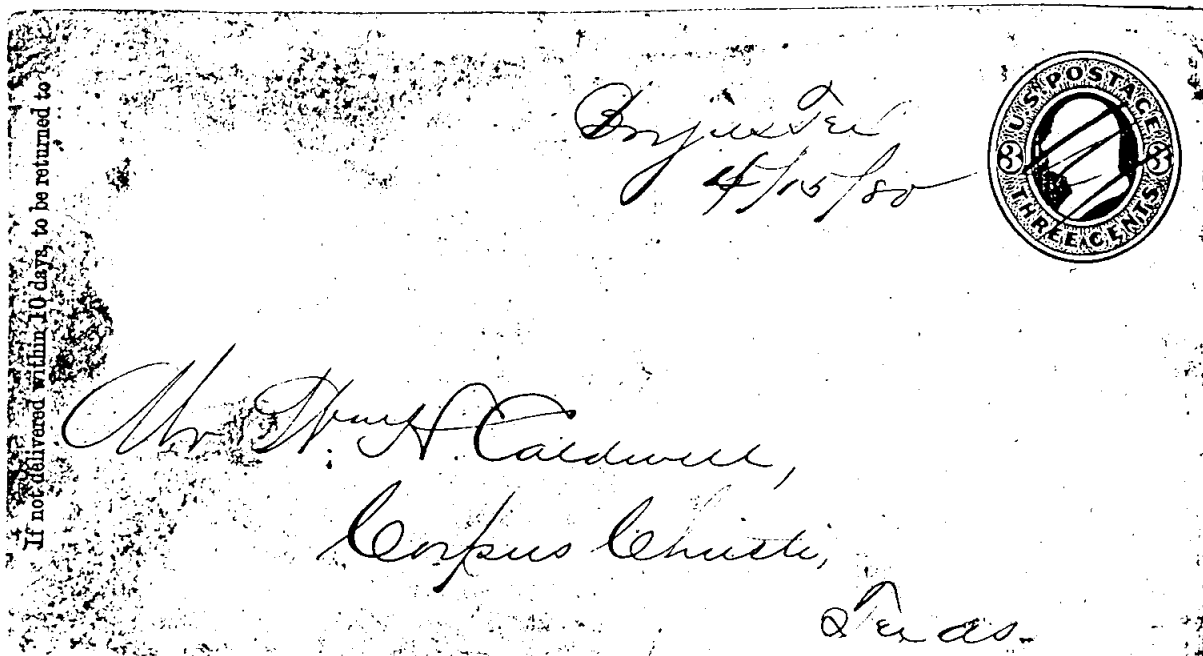 If not delivered within 10 days, to be returned to
Tex
4/15/80
U.S. POSTAGE
3 3
THREE CENTS
Mr Wm H. Caldwell,
Corpus Christi,
Texas.